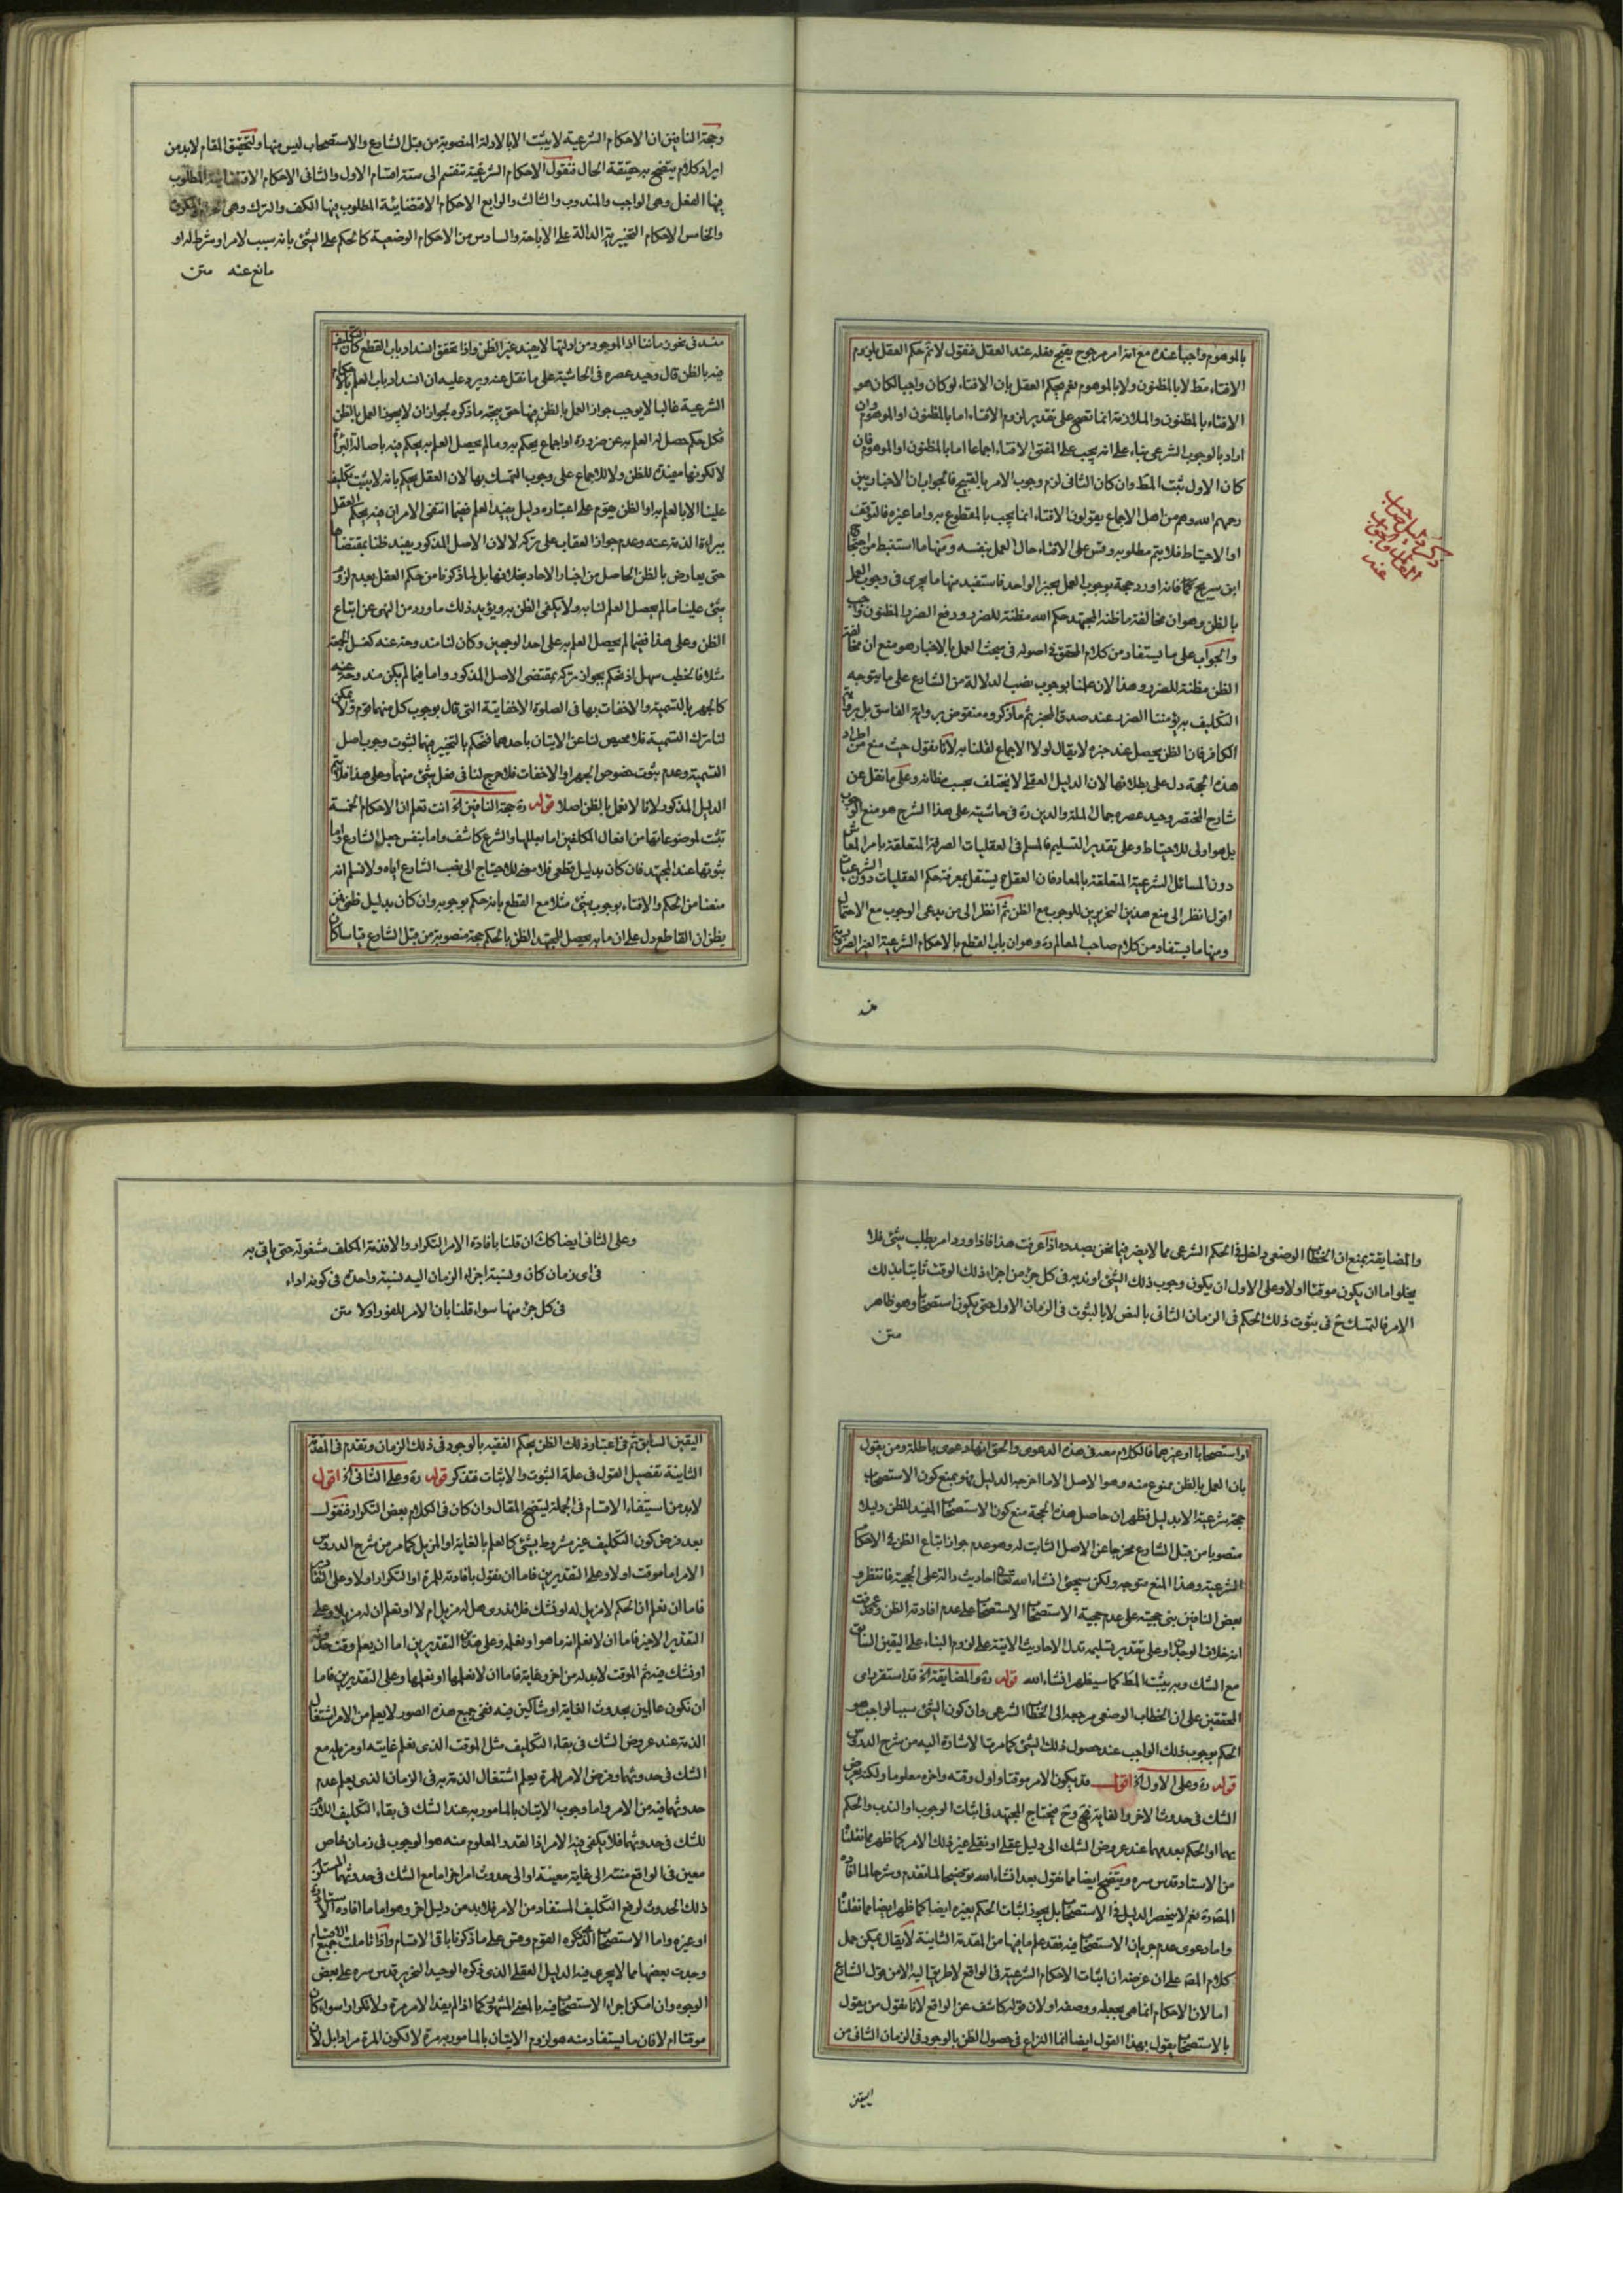 بالموهوم واجبا عنده مع انه امر مرجوح يقبح فعله عند العقل فنقول لا نم حكم العقل بلزوم
الافتاء مط لا بالمظنون ولا بالموهوم نعم يحكم العقل بان الافتاء لو كان واجبا لكان هو
الافتاء بالمظنون والملازمة انما تصح على تقدير لزوم الافتاء اما بالمظنون او الموهوم وان
اراد بالوجوب الشرعى بناء على انه يجب على المفتى الافتاء اجماعا اما بالمظنون او الموهوم فان
كان الاول ثبت المط وان كان الثانى لزم وجوب الامر بالقبيح فالجواب ان الاخباريين
رحمهم الله وهم من اهل الاجماع يقولون الافتاء انما يجب بالمقطوع به واما غيره فالتوقف
او الاحتياط فلا يتم مطلوبه وقس على الافتاء حال العمل بنفسه ومنها ما استنبط من احتجاج
ابن سريج فانه اورد حجة بوجوب العمل بخبر الواحد فاستفيد منها ما يجرى فى وجوب العمل
بالظن وهو ان مخالفة ما ظنه المجتهد حكم الله مظنة للضرر ودفع الضرر المظنون واجب
والجواب على ما يستفاد من كلام المحقق فى اصوله فى مبحث العمل بالاخبار هو منع ان مخالفة
الظن مظنة للضرر وهذا لان علمنا بوجوب نصب الدلالة من الشارع على ما يتوجه
التكليف به يؤمننا الضرر عند صدق المخبر ثم ما ذكروه منقوض برواية الفاسق بل برواية
الكافر فان الظن يحصل عند خبره لا يقال لولا الاجماع لقلنا به لانا نقول حيث منع من اطراد
هذه الحجة دل على بطلانها لان الدليل العقلى لا يختلف بحسب مظانه وعلى ما نقل عن
شارح المختصر وحيد عصره جمال الملة والدين ره فى حاشيته على هذا الشرح هو منع الوجوب
بل هو اولى للاحتياط وعلى تقدير التسليم فالمسلم فى العقليات الصرفة المتعلقة بامر المعاش
دون المسائل الشرعية المتعلقة بالمعاد فان العقل يستقل بمعرفة حكم العقليات دون الشرعيات
اقول انظر الى منع هذين النحريرين للوجوب مع الظن ثم انظر الى من يدعى الوجوب مع الاحتمال
ومنها ما يستفاد من كلام صاحب المعالم ره وهو ان باب القطع بالاحكام الشرعية الغير الضرورية
وحجة النافين ان الاحكام الشرعية لا يثبت الا بالادلة المنصوبة من قبل الشارع والاستصحاب ليس منها ولتحقيق المقام لابد من
ايراد كلام يتضح به حقيقة الحال فنقول الاحكام الشرعية تنقسم الى ستة اقسام الاول والثانى الاحكام الاقتضائية المطلوب
فيها الفعل وهى الواجب والمندوب والثالث والرابع الاحكام الاقتضائية المطلوب فيها الكف والترك وهى
والخامس الاحكام التخييرية الدالة على الاباحة والسادس من الاحكام الوضعية كالحكم على الشئ بانه سبب لامر او شرط له او
مانع عنه متن
منسد فى نحو زماننا اذ الموجود من ادلتها لا يفيد غير الظن واذا تحقق انسداد باب القطع كان التكليف
فيه بالظن قال وحيد عصره فى الحاشية على ما نقل عنه ويرد عليه ان انسداد باب العلم بالاحكام
الشرعية غالبا لا يوجب جواز العمل بالظن فيها حتى يتجه ما ذكروه لجواز ان لا يجوز العمل بالظن
فكل حكم حصل له العلم به عن ضرورة او اجماع يحكم به وما لم يحصل العلم به يحكم فيه باصالة البرائة
لا لكونها مفيدة للظن ولا للاجماع على وجوب التمسك بها لان العقل يحكم بانه لا يثبت تكليف
علينا الا بالعلم به او الظن يقوم على اعتباره دليل يفيد العلم ففيما انتفى الامران فيه يحكم العقل
ببراءة الذمة عنه وعدم جواز العقاب على تركه لا لان الاصل المذكور يفيد ظنا بمقتضاها
حتى يعارض بالظن الحاصل من اخبار الاحاد بخلافها بل لما ذكرنا من حكم العقل بعدم لزوم
شئ علينا ما لم يحصل العلم لنا به ولا يكفى الظن به ويؤيد ذلك ما ورد من النهى عن اتباع
الظن وعلى هذا ففيما لم يحصل العلم به على احد الوجهين وكان لنا مندوحة عنه كغسل الجمعة
مثلا فالخطب سهل اذ نحكم بجواز تركه بمقتضى الاصل المذكور واما فيما لم يكن مندوحة عنه
كالجهر بالتسمية والاخفات بها فى الصلوة الاخفاتية التى قال بوجوب كل منهما قوم ولا يمكن
لنا ترك التسمية فلا محيص لنا عن الاتيان باحدهما فنحكم بالتخيير فيها لثبوت وجوب اصل
التسمية وعدم ثبوت خصوص الجهر او الاخفات فلا حرج لنا فى فعل شئ منهما وعلى هذا فلا يتم
الدليل المذكور لانا لا نعمل بالظن اصلا قوله ره حجة النافين اخ انت تعلم ان الاحكام الخمسة
تثبت لموضوعاتها من افعال المكلفين اما بعللها والشرع كاشف واما بنفس جعل الشارع واما
ثبوتها عند المجتهد فان كان بدليل قطعى فلا معنى للاحتياج الى نصب الشارع اياه ولا نسلم انه
منعنا من الحكم والافتاء بوجوب شئ مثلا مع القطع بانه حكم بوجوبه وان كان بدليل ظنى فمن
يظن ان القاطع دل على ان ما به يحصل للمجتهد الظن بالحكم حجة منصوبة من قبل الشارع قياسا كان
والمضايقة بمنع ان الخطاب الوضعى داخل فى الحكم الشرعى مما لا يضر فيما نحن بصدده اذا عرفت هذا فاذا ورد امر بطلب شئ فلا
يخلو اما ان يكون موقتا او لا وعلى الاول ان يكون وجوب ذلك الشئ او ندبه فى كل جزء من اجزاء ذلك الوقت ثابتا بذلك
الامر فالتمسك ح فى ثبوت ذلك الحكم فى الزمان الثانى بالنص لا بالثبوت فى الزمان الاول حتى يكون استصحابا وهو ظاهر
متن
او استصحابا او غيرهما فالكلام معه فى هذه الدعوى والحق انها دعوى باطلة ومن يقول
بان العمل بالظن ممنوع منه وهو الاصل الا ما اخرجه الدليل فهو يمنع كون الاستصحاب
حجة شرعية الا بدليل فظهر ان حاصل هذه الحجة منع كون الاستصحاب المفيد للظن دليلا
منصوبا من قبل الشارع مخرجا عن الاصل الثابت له وهو عدم جواز اتباع الظن فى الاحكام
الشرعية وهذا المنع متوجه ولكن سيجئ انشاء الله تعالى احاديث دالة على الحجية فانتظر و
بعض النافين بنى حجيته على عدم حجية الاستصحاب الاستصحاب على عدم افادته الظن وقد عرفت
انه خلاف الوجدان وعلى تقدير تسليمه تدل الاحاديث الاتية على لزوم البناء على اليقين السابق
مع الشك وبه يثبت المط كما سيظهر انشاء الله قوله ره والمضايقة اخ قد استقر راى
المحققين على ان الخطاب الوضعى مرجعه الى الخطاب الشرعى وان كون الشئ سببا لواجب هو
الحكم بوجوب ذلك الواجب عند حصول ذلك الشئ كما مرت الاشارة اليه من شرح الدروس
قوله ره وعلى الاول اخ اقول قد يكون الامر موقتا واول وقته واخره معلوما ولكنه يعرض
الشك فى حدوث الاخر والغاية فح يحتاج المجتهد فى اثبات الوجوب او الندب والحكم
بهما او الحكم بعدمهما عند عروض الشك الى دليل عقلى او نقلى غير ذلك الامر كما ظهر مما نقلنا
من الاستاد قدس سره ويتضح ايضا مما نقول بعد انشاء الله توضيحا لما تقدم وشرحا لما افاده
المص ره نعم لا ينحصر الدليل فى الاستصحاب بل يجوز اثبات الحكم بغيره ايضا كما ظهر ايضا مما نقلنا
واما دعوى عدم جريان الاستصحاب فيه فقد علم ما فيها من المقدمة الثانية لا يقال يمكن حمل
كلام المص على ان غرضه ان اثبات الاحكام الشرعية فى الواقع لا طريق اليه الا من قول الشارع
اما لان الاحكام انما هى بجعله ووضعه او لان قوله كاشف عن الواقع لانا نقول من يقول
بالاستصحاب يقول بهذا القول ايضا انما النزاع فى حصول الظن بالوجود فى الزمان الثانى من
اليقين
وعلى الثانى ايضا كك ان قلنا بافادة الامر التكرار والا فذمة المكلف مشغولة حتى ياتى به
فى اى زمان كان ونسبة اجزاء الزمان اليه نسبة واحدة فى كونه اداء
فى كل جزء منها سواء قلنا بان الامر للفور او لا متن
اليقين السابق ثم فى اعتبار ذلك الظن يحكم الفقيه بالوجود فى ذلك الزمان وتقدم فى المقدمة
الثانية تفصيل القول فى علة الثبوت والاثبات فتذكر قوله ره وعلى الثانى اخ اقول
لابد من استيفاء الاقسام فى الجملة ليتضح المقال وان كان فى الكلام بعض التكرار فنقول
بعد فرض كون التكليف غير مشروط بشئ كالعلم بالغاية او المزيل كما مر من شرح الدروس
الامر اما موقت او لا وعلى التقديرين فاما ان نقول بافادته للمرة او التكرار او لا وعلى التقادير
فاما ان نعلم ان الحكم لا مزيل له او نشك فلا ندرى هل له مزيل ام لا او نعلم ان له مزيلا وعلى
التقدير الاخير فاما ان لا نعلم انه ما هو او نعلم وعلى هذين التقديرين اما ان يعلم وقت حدوثه
او نشك فيه ثم الموقت لابد له من اخر وغاية فاما ان لا نعلمها او نعلمها وعلى التقديرين فاما
ان نكون عالمين بحدوث الغاية او شاكين فيه ففى جميع هذه الصور لا يعلم من الامر اشتغال
الذمة عند عروض الشك فى بقاء التكليف مثل الموقت الذى نعلم غايته او مزيله مع
الشك فى حدوثهما وفرض الامر للمرة يعلم اشتغال الذمة به فى الزمان الذى يعلم عدم
حدوثهما فيه من الامر واما وجوب الاتيان بالمامور به عند الشك فى بقاء التكليف اللازم
للشك فى حدوثهما فلا يكفى فيه الامر اذ القدر المعلوم منه هو الوجوب فى زمان خاص
معين فى الواقع منته الى غاية معينة او الى حدوث امر اخر اما مع الشك فى حدوثهما المستلزم
ذلك الحدوث لرفع التكليف المستفاد من الامر فلابد من دليل اخر وهو اما ما افاده الاستاد ره
او غيره واما الاستصحاب الذى ذكره القوم وقس على ما ذكرنا باقى الاقسام واذا تاملت جميع الاقسام
وجدت بعضها مما لا يجرى فيه الدليل العقلى الذى ذكره الوحيد النحرير قدس سره على بعض
الوجوه وان امكن اجراء الاستصحاب فيه بالمعنى المشهور كما اذا لم يفد الامر مرة ولا تكرارا سواء كان
موقتا ام لا فان ما يستفاد منه هو لزوم الاتيان بالمامور به مرة لا لكون المرة مرادا بل لان